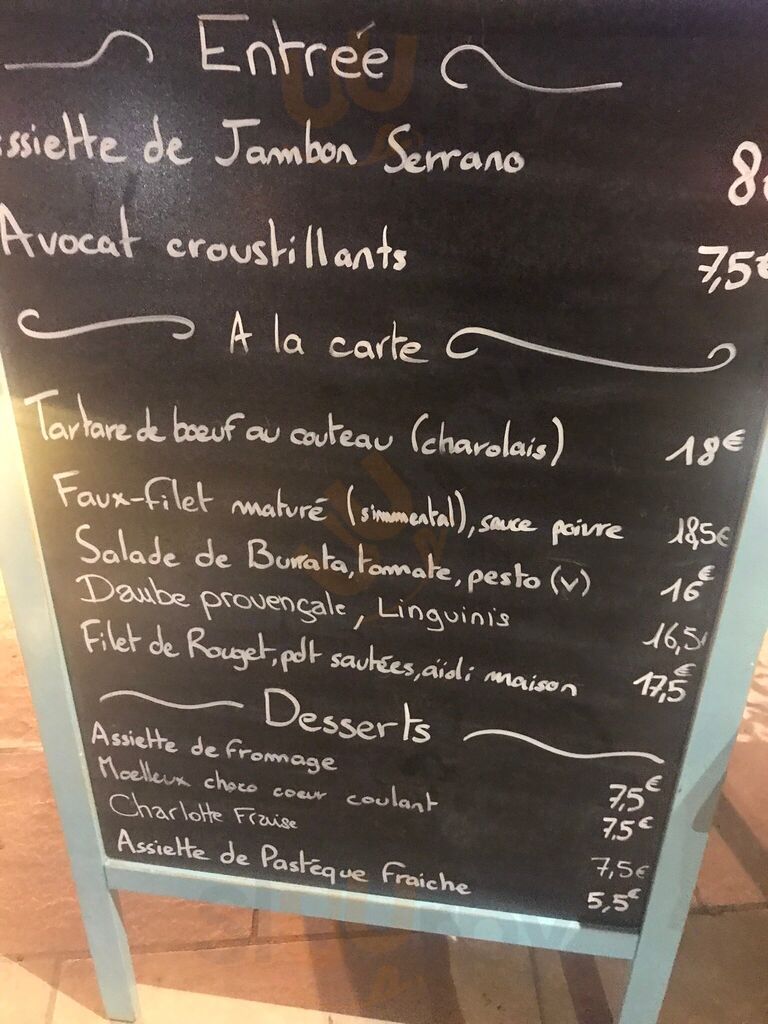 Entrée
ssiette de Jambon Serrano 8€
Avocat croustillants 7,5€
A la carte
Tartare de boeuf au couteau (charolais) 18€
Faux-filet maturé (simmental), sauce poivre 18,5€
Salade de Burrata, tommate, pesto (v) 16€
Daube provençale, Linguinis 16,5€
Filet de Rouget, pdt sautées, aïoli maison 17,5€
Desserts
Assiette de fromage 7,5€
Moelleux choco coeur coulant 7,5€
Charlotte Fraise 7,5€
Assiette de Pastèque Fraiche 5,5€